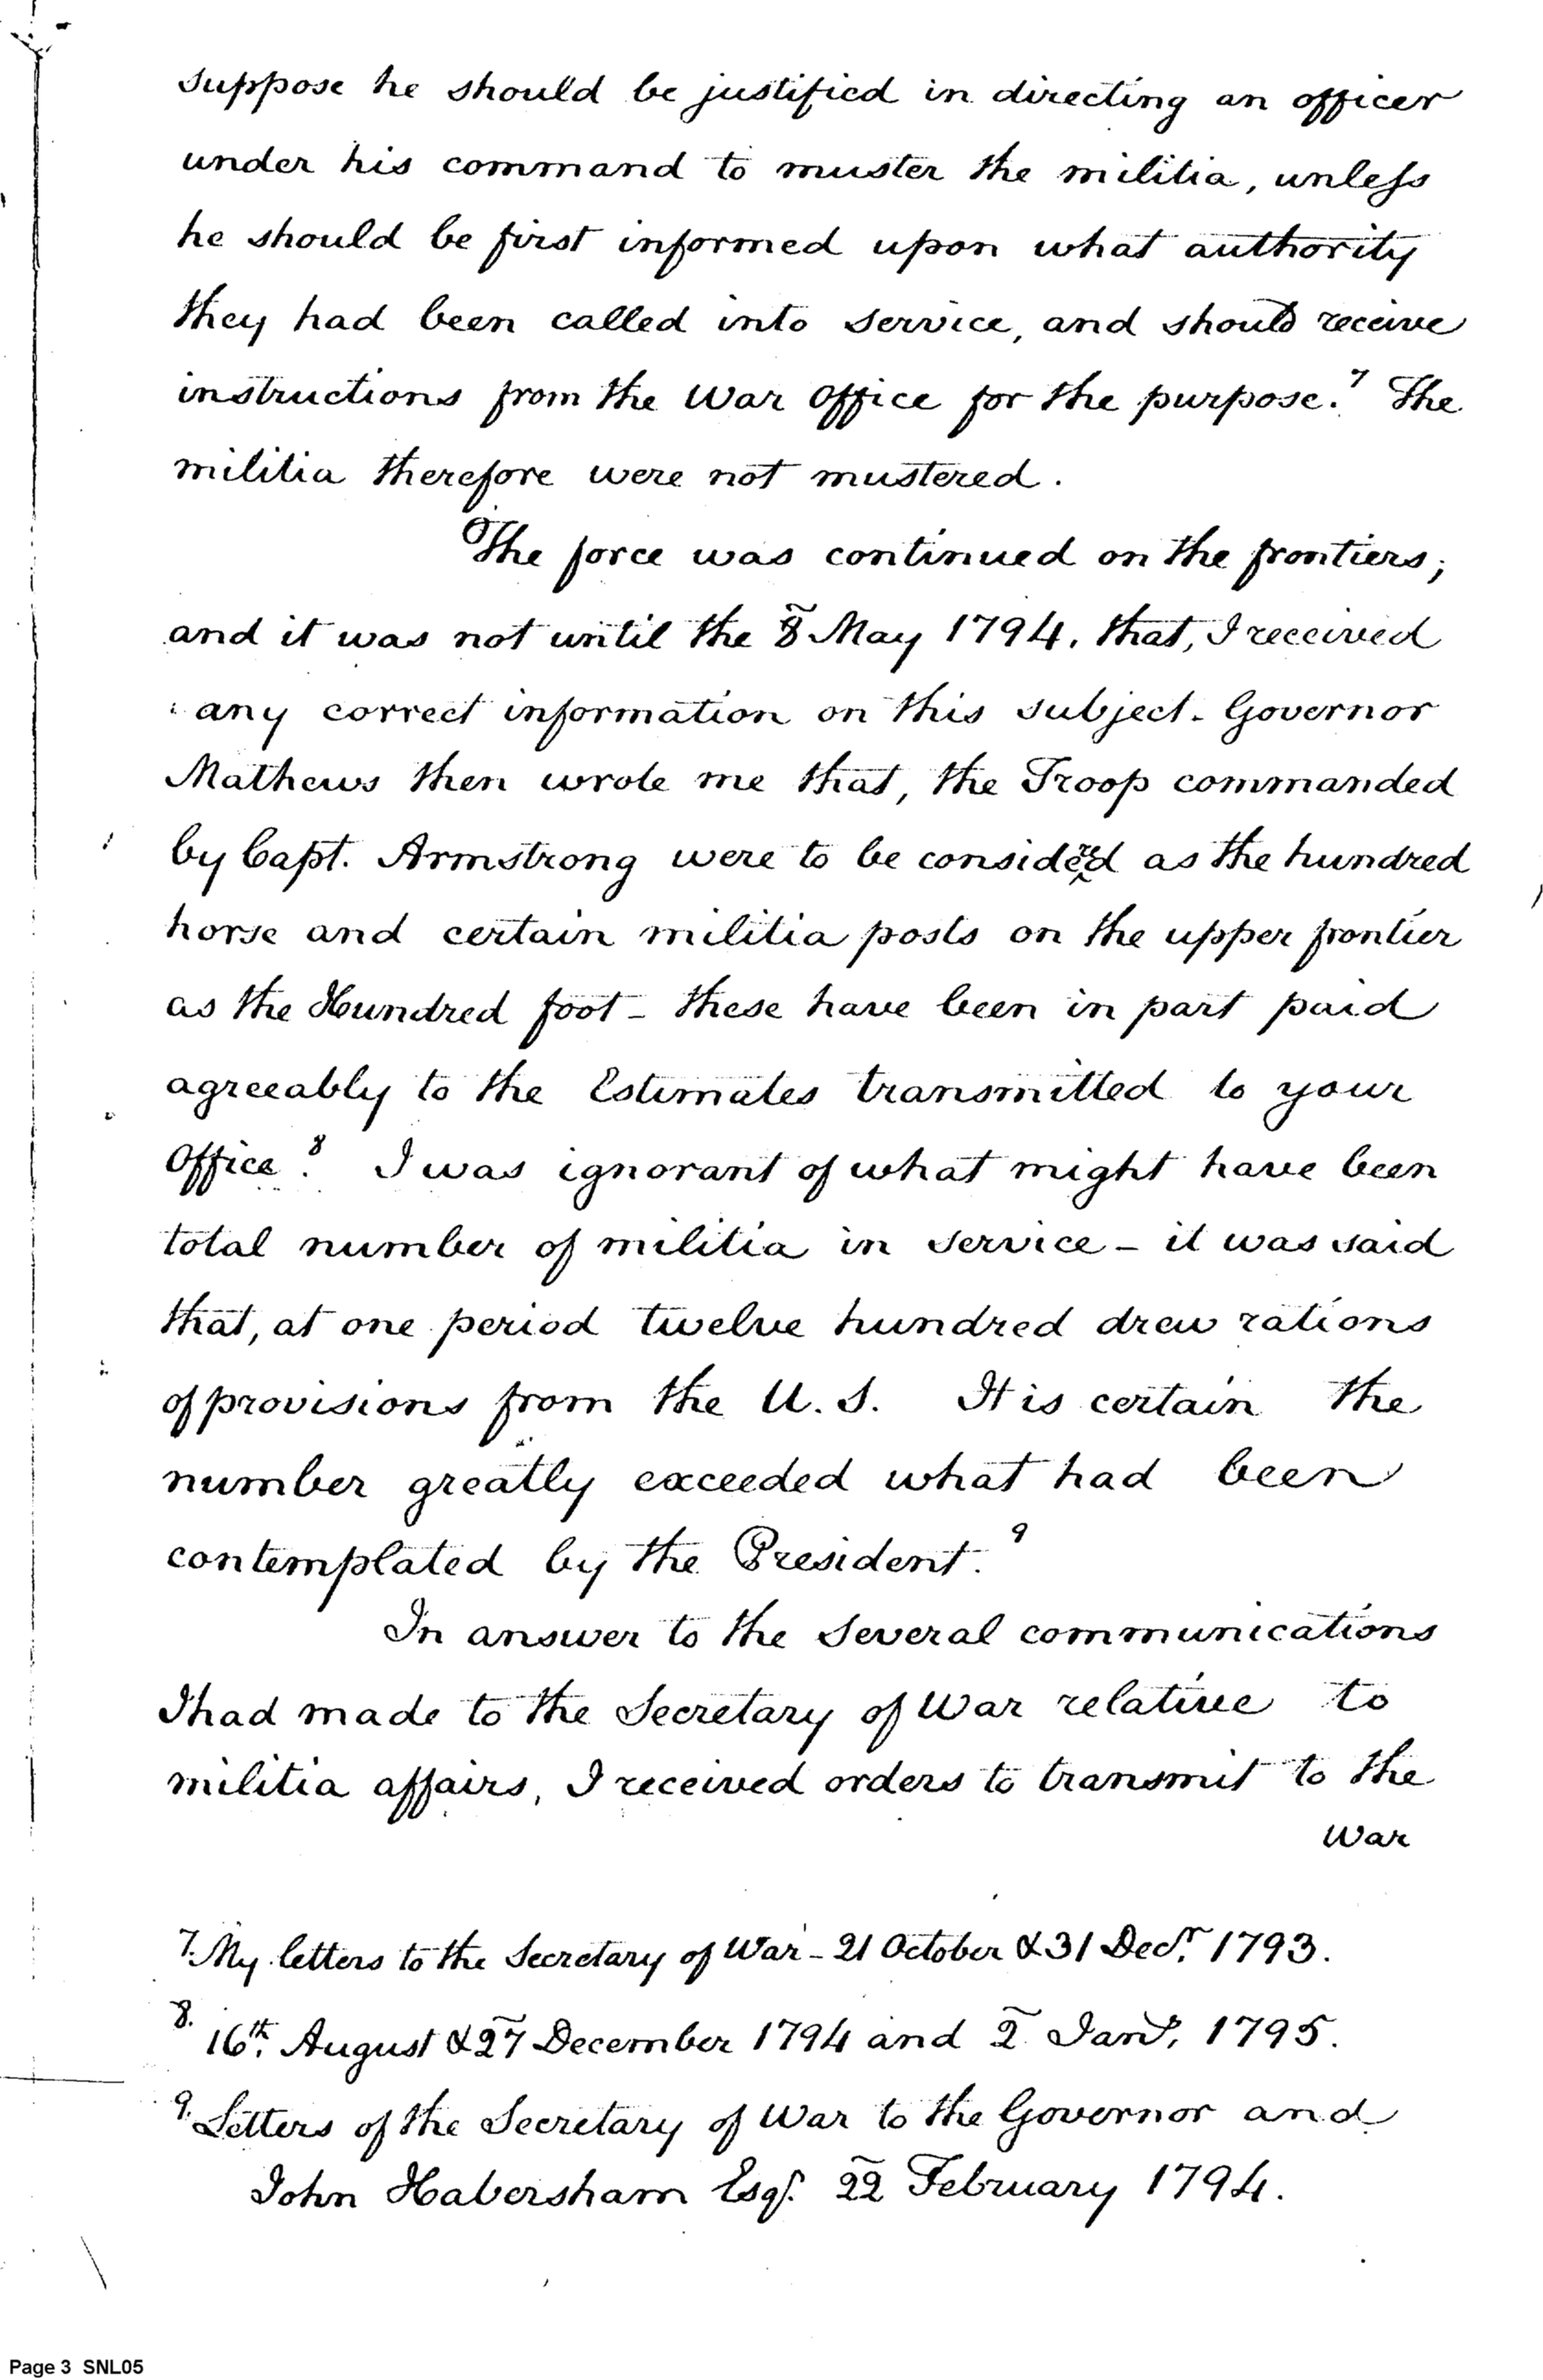 suppose he should be justified in directing an officer
under his command to muster the militia, unless
he should be first informed upon what authority
they had been called into service, and should receive
instructions from the War Office for the purpose.⁷ The
militia therefore were not mustered.
The force was continued on the frontiers;
and it was not until the 8 May 1794. that, I received
any correct information on this subject. Governor
Mathews then wrote me that, the Troop commanded
by Capt. Armstrong were to be considered as the hundred
horse and certain militia posts on the upper frontier
as the Hundred foot - these have been in part paid
agreeably to the Estimates transmitted to your
Office.⁸ I was ignorant of what might have been
total number of militia in service - it was said
that, at one period twelve hundred drew rations
of provisions from the U. S. It is certain the
number greatly exceeded what had been
contemplated by the President.⁹
In answer to the several communications
I had made to the Secretary of War relative to
militia affairs, I received orders to transmit to the
War
7. My letters to the Secretary of War - 21 October & 31 Decr. 1793.
8. 16th. August & 27 December 1794 and 2 Jany. 1795.
9. Letters of the Secretary of War to the Governor and
John Habersham Esqr. 22 February 1794.
Page 3 SNL05